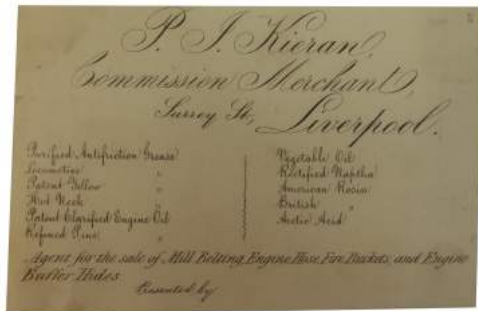 P. J. Kieran,
Commission Merchant,
Surrey St, Liverpool.
Purified Antifriction Grease
Locomotive "
Patent Yellow "
Hot Neck "
Patent Clarified Engine Oil
Refined Pine "
Vegetable Oil
Rectified Naptha
American Rosin
British "
Acetic Acid
Agent for the sale of Mill Belting, Engine Hose, Fire Buckets, and Engine
Buffer Hides
Presented by